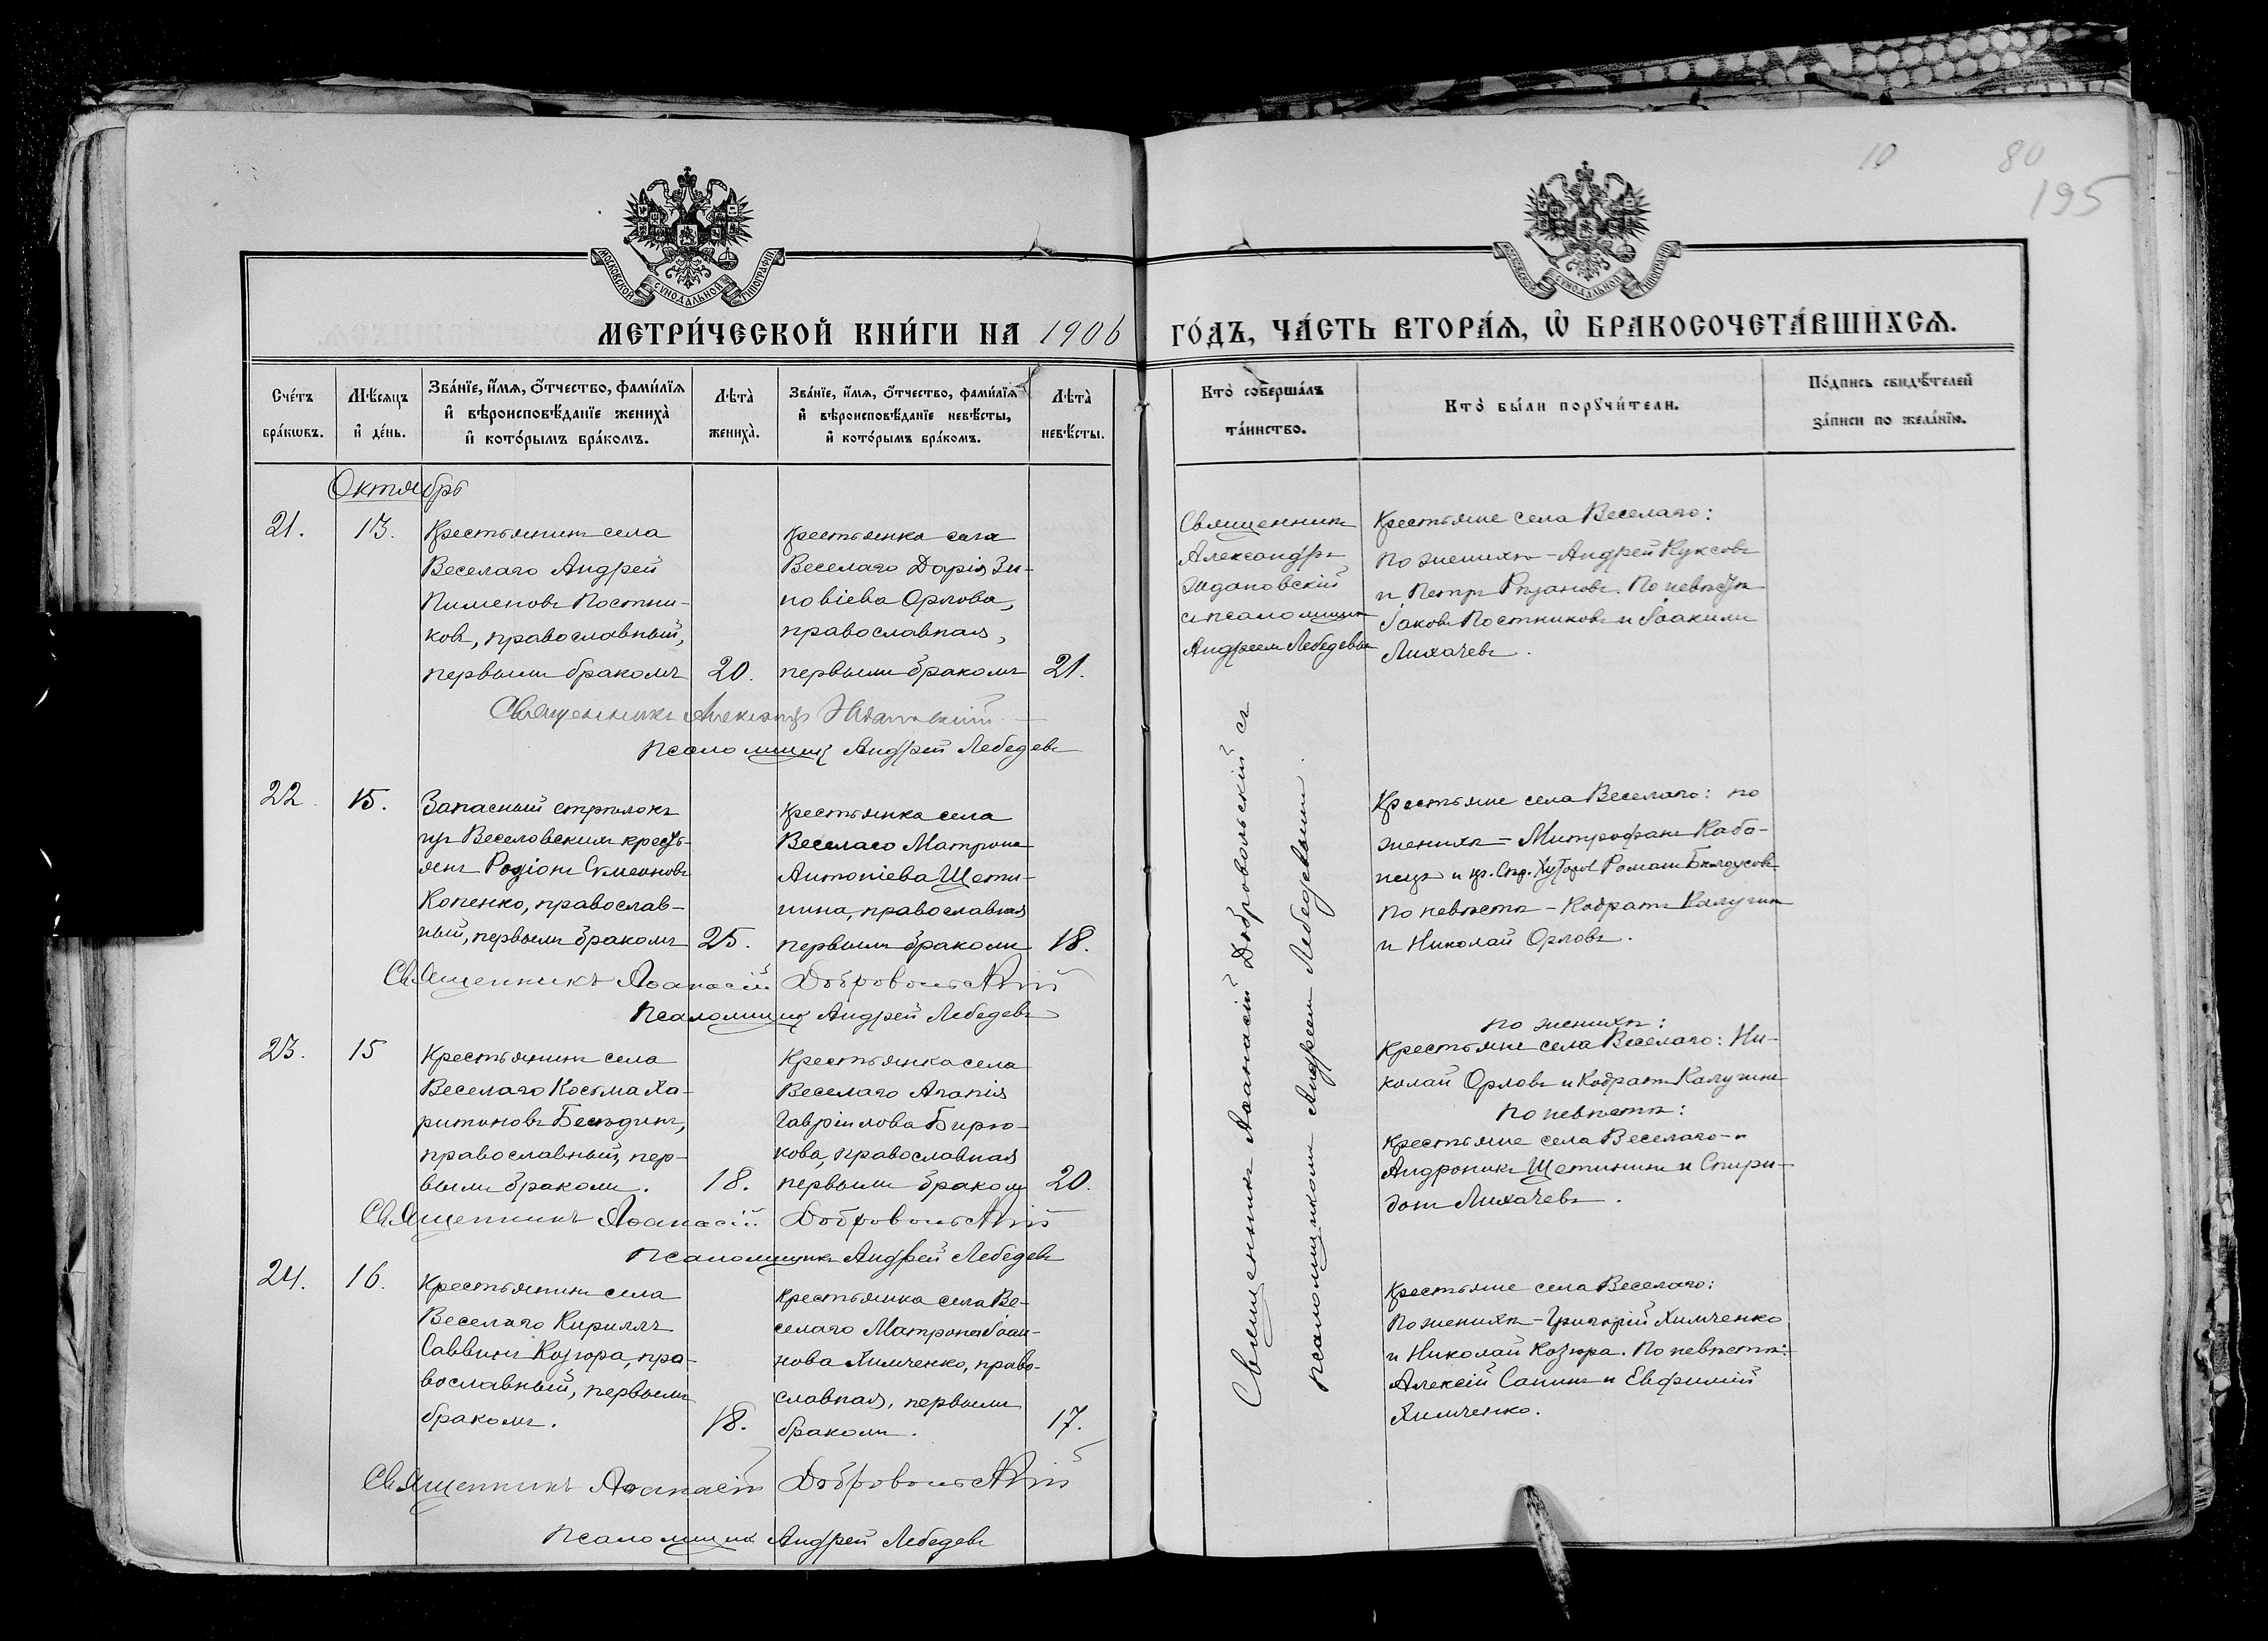 10 80
195
МОСКОВСКОЙ СУНОДАЛЬНОЙ ТИПОГРАФІИ
МОСКОВСКОЙ СУНОДАЛЬНОЙ ТИПОГРАФІИ
МЕТРИ́ЧЕСКОЙ КНИ́ГИ НА 1906 ГО́ДЪ, ЧА́СТЬ ВТОРА́Я, Ѡ҆ БРАКОСОЧЕТА́ВШИХСЯ.
Сче́тъ
бра́кѡвъ.
Мѣ́сяцъ
и҆ де́нь.
Зва́нїе, и҆́мя, ѻ҆́тчество, фами́лїя
и҆ вѣроисповѣ́данїе жениха̀
и҆ кото́рымъ бра́комъ.
Лѣ́та
жениха̀.
Зва́нїе, и҆́мя, ѻ҆́тчество, фами́лїя
и҆ вѣроисповѣ́данїе невѣ́сты,
и҆ кото́рымъ бра́комъ.
Лѣ́та
невѣ́сты.
Кто̀ соверша́лъ
та́инство.
Кто̀ бы́ли порꙋчи́тели.
По́дпись свидѣ́телей
за́писи по жела́нїю.
Октябрь
21.
13.
Крестьянинъ села
Веселаго Андрей
Пименовъ Постни-
ковъ, православный,
первымъ бракомъ
20.
Крестьянка села
Веселаго Дарія Зи-
новіева Орлова,
православная,
первымъ бракомъ
21.
Священникъ
Александръ
Ждановскій
съ псаломщик
Андреем Лебедевым
Крестьяне села Веселаго:
по женихѣ - Андрей Куксовъ
и Петръ Рязановъ. По невѣстѣ
Іаковъ Постниковъ и Іоакимъ
Лихачевъ.
Священникъ Александръ Ждановскій
Псаломщикъ Андрей Лебедевъ
22.
15.
Запасный стрѣлокъ
изъ Веселовскихъ кресть-
янъ Родіонъ Сѵмеоновъ
Копенко, православ-
ный, первымъ бракомъ
25.
Крестьянка села
Веселаго Матрона
Антоніева Щети-
нина, православная
первымъ бракомъ
18.
Крестьяне села Веселаго: по
женихѣ - Митрофанъ Кабо-
нецъ и кр. Спр. Хуторов Романъ Бѣлоусовъ
по невѣстѣ - Кодратъ Калугинъ
и Николай Орловъ.
Священникъ Аѳанасій Добровольскій
Псаломщикъ Андрей Лебедевъ
23.
15
Крестьянинъ села
Веселаго Косьма Ха-
ритоновъ Бесѣдинъ,
православный, пер-
вымъ бракомъ.
18.
Крестьянка села
Веселаго Агапія
Гавріилова Бирю-
кова, православная
первымъ бракомъ
20.
по женихѣ:
Крестьяне села Веселаго: Ни-
колай Орловъ и Кодратъ Калугинъ
по невѣстѣ:
Крестьяне села Веселаго -
Андроникъ Щетининъ и Спири-
донъ Лихачевъ.
Священникъ Аѳанасій Добровольскій
Псаломщикъ Андрей Лебедевъ
24.
16.
Крестьянинъ села
Веселаго Кириллъ
Саввинъ Козюра, пра-
вославный, первымъ
бракомъ.
18.
Крестьянка села Ве-
селаго Матрона Іоан-
нова Химченко, право-
славная, первымъ
бракомъ.
17.
Крестьяне села Веселаго:
По женихѣ - Григорій Химченко
и Николай Козюра. По невѣстѣ:
Алексій Сапинъ и Евфимій
Химченко.
Священникъ Аѳанасій Добровольскій
Псаломщикъ Андрей Лебедевъ
Священникъ Аѳанасій Добровольскій съ
псаломщикомъ Андреемъ Лебедевымъ.